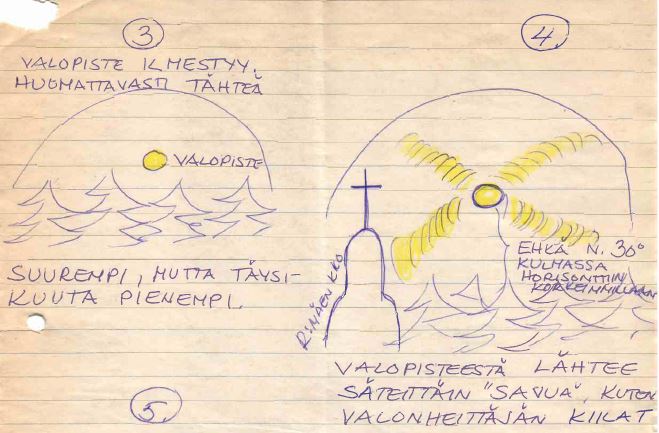 3
VALOPISTE ILMESTYY.
HUOMATTAVASTI TÄHTEÄ
VALOPISTE
SUUREMPI, MUTTA TÄYSI-
KUUTA PIENEMPI.
5.
4.
EHKÄ N. 30°
KULMASSA
HORISONTTIIN
KORKEIMMILLAAN
R:MÄEN KKO
VALOPISTEESTÄ LÄHTEE
SÄTEITTÄIN "SAVUA", KUTEN
VALONHEITTÄJÄN KIILAT